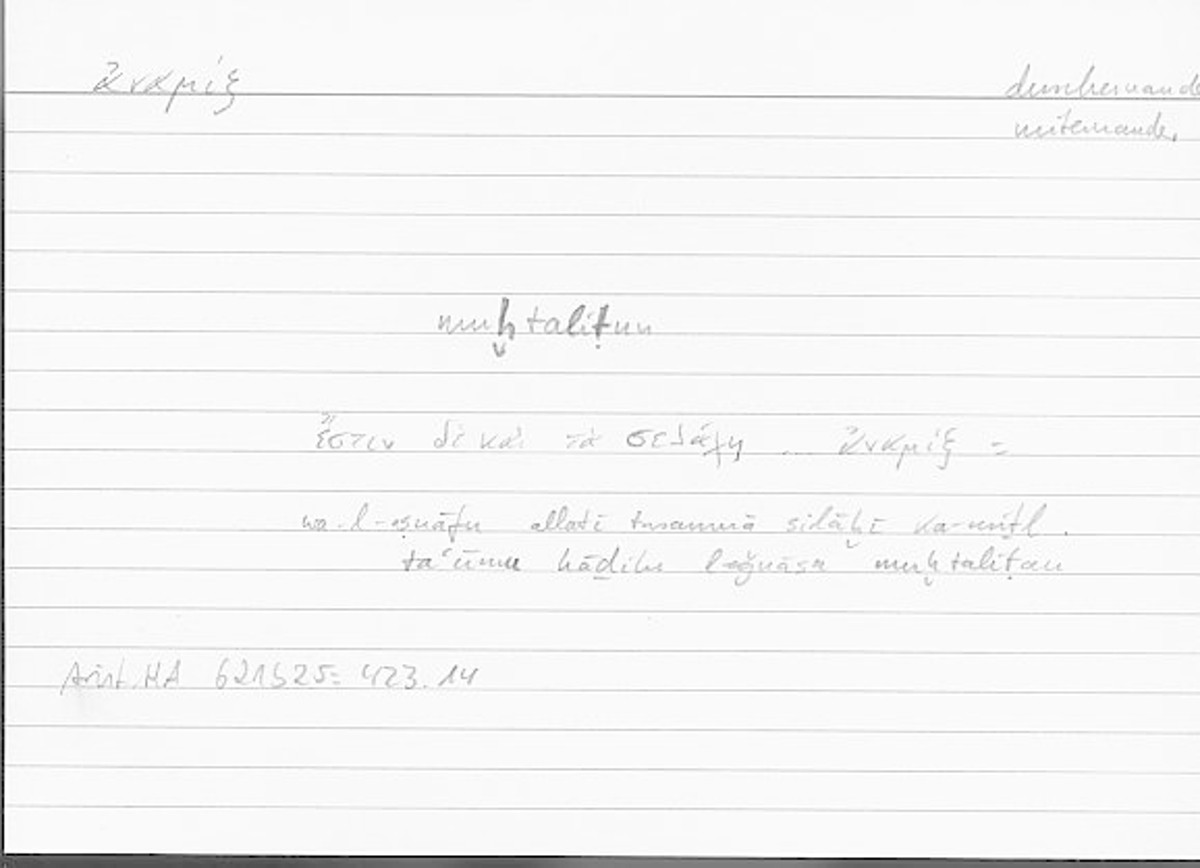 ἀναμίξ
durcheinande
miteinander
muḫtaliṭun
ἔστιν δὲ καὶ τὰ σελάχη ... ἀναμίξ =
wa-l-aṣnāfu allatī tusammā silāḫī ka-miṯl.
ta‘ūmu hāḏihi l-aǧnāsu muḫtaliṭan
Arist. HA 621b25 = 423.14